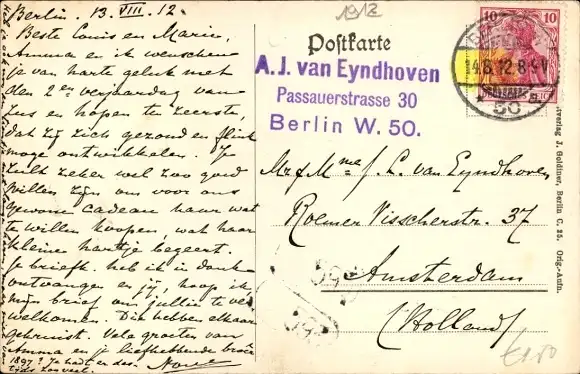 Berlin. 13. VIII. 12.
Beste Louis en Marie,
Amma en ik wenschen
je van harte geluk met
den 2en verjaardag van
Zus en hopen te zeerste,
dat zij zich gezond en flink
moge ontwikkelen. Je
zult zeker wel zoo goed
willen zijn om voor ons
gewone cadeau haar wat
te willen koopen, wat haar
kleine hartje begeert.
Je briefk. heb ik in dank
ontvangen en jij, hoop ik
mijn brief om jullie te ver
welkomen. Die hebben elkaar
gekruist. Vele groeten van
Amma en je liefhebbende broer
1897? Je hadt er des
tijds zooveel.
1912
Postkarte
A. J. van Eyndhoven
Passauerstrasse 30
Berlin W. 50.
10 10
14.8.12.8-9V
* 50
Mr & Mme J. L. van Eyndhoven
Roemer Visscherstr. 37
Amsterdam
(Holland)
verlag J. Goldiner, Berlin C. 25. Orig.-Aufn.